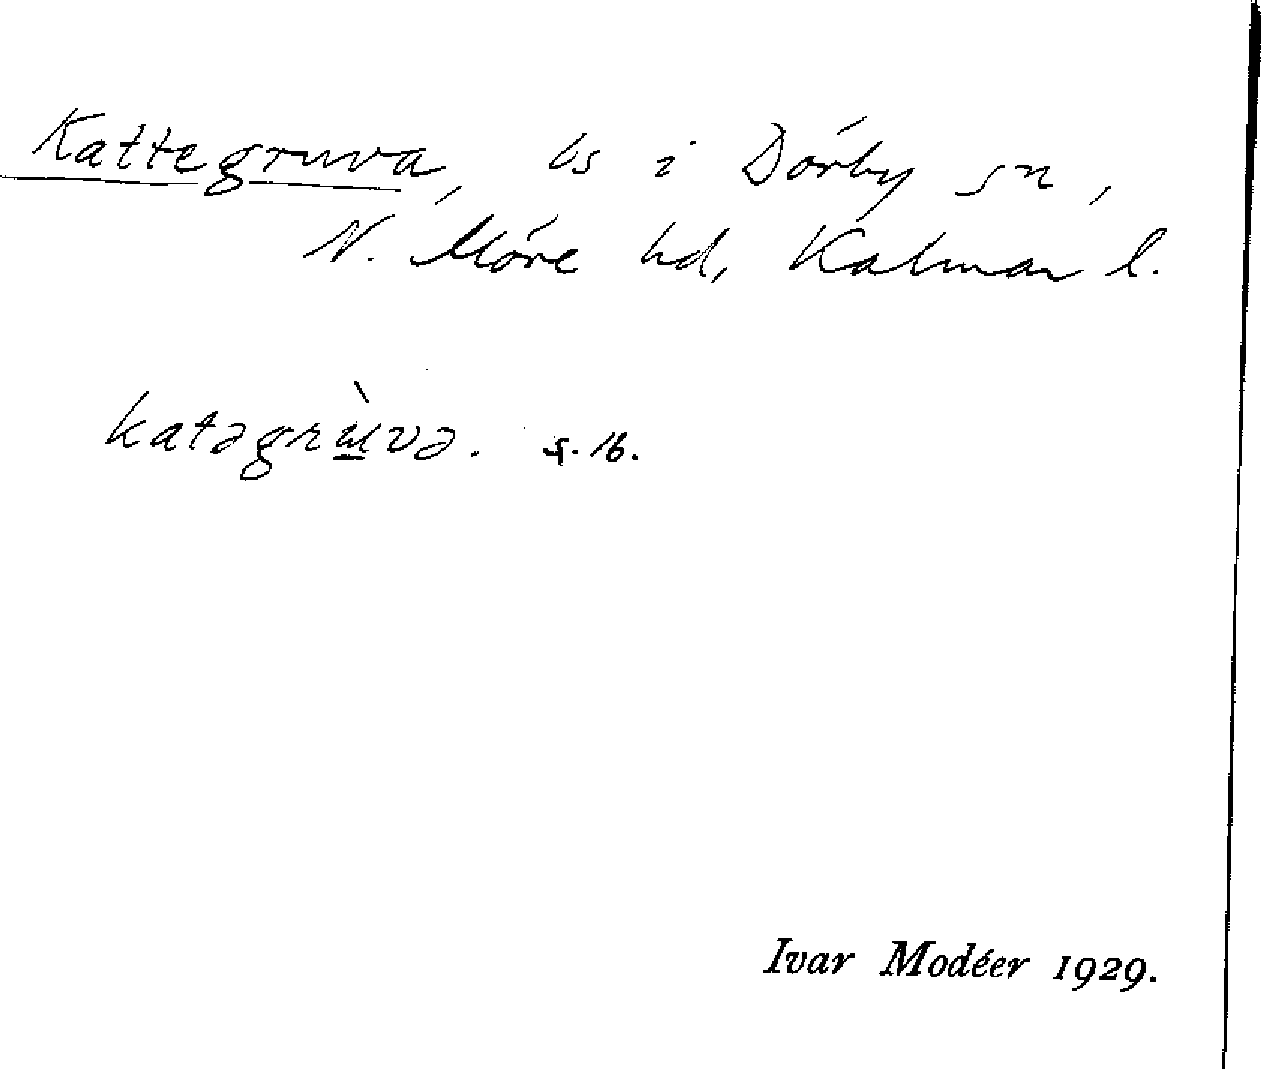 Kattegruva, ls i Dörby sn,
N. Möre hd, Kalmar l.
katəgrùvə. s. 16.
Ivar Modéer 1929.